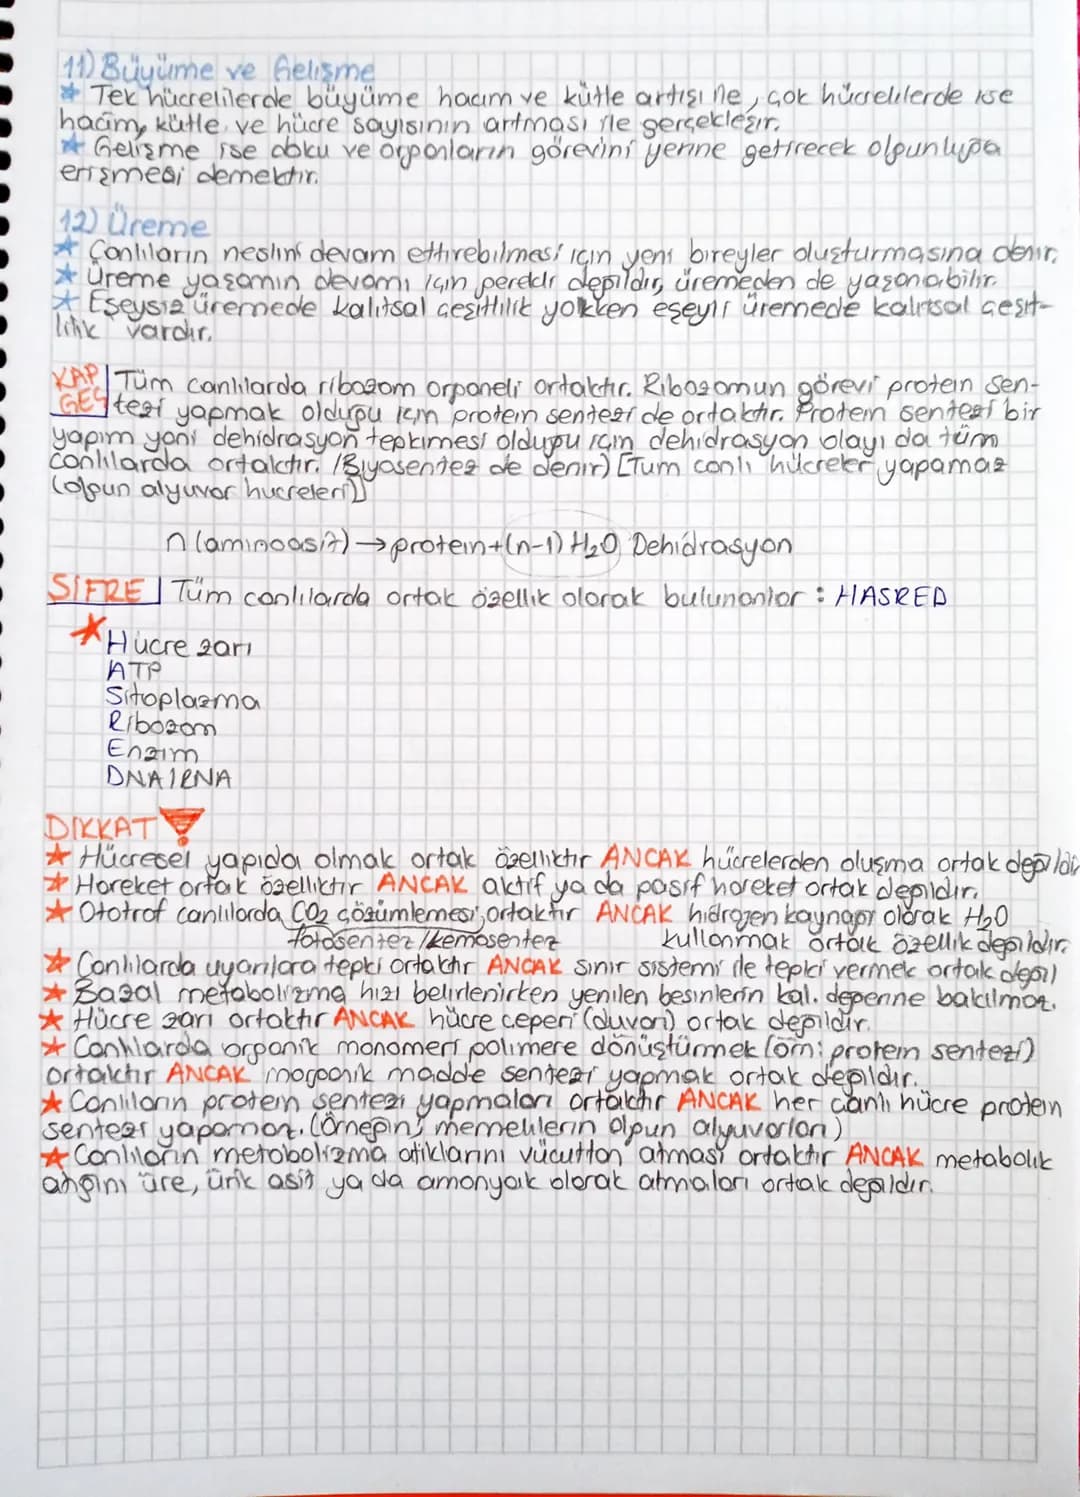 11) Büyüme ve Gelişme
★ Tek hücrelilerde büyüme hacim ve kütle artışı ile, çok hücrelilerde ise
hacim, kütle ve hücre sayısının artması ile gerçekleşir.
★ Gelişme ise doku ve organların görevini yerine getirecek olgunluğa
erişmesi demektir.
12) Üreme
★ Canlıların neslini devam ettirebilmesi için yeni bireyler oluşturmasına denir.
★ Üreme yaşamın devamı için gerekli değildir, üremeden de yaşanabilir.
★ Eşeysiz üremede kalıtsal çeşitlilik yokken eşeyli üremede kalıtsal çeşit-
lilik vardır.
KAP Tüm canlılarda ribozom organeli ortaktır. Ribozomun görevi protein sen-
GEÇ tezi yapmak olduğu için protein sentezi de ortaktır. Protein sentezi bir
yapım yani dehidrasyon tepkimesi olduğu için dehidrasyon olayı da tüm
canlılarda ortaktır. (Biyosentez de denir) [Tüm canlı hücreler yapamaz
(olgun alyuvar hücreleri)]
n(aminoasit) → protein+(n-1) H₂O Dehidrasyon
ŞİFRE Tüm canlılarda ortak özellik olarak bulunanlar : HASRED
★ Hücre zarı
ATP
Sitoplazma
Ribozom
Enzim
DNA/RNA
DİKKAT
★ Hücresel yapıda olmak ortak özelliktir ANCAK hücrelerden oluşma ortak değildir
★ Hareket ortak özelliktir ANCAK aktif ya da pasif hareket ortak değildir.
★ Ototrof canlılarda CO₂ özümlemesi ortaktır ANCAK hidrojen kaynağı olarak H₂O
fotosentez/kemosentez kullanmak ortak özellik değildir.
★ Canlılarda uyarılara tepki ortaktır ANCAK sinir sistemi ile tepki vermek ortak değil
★ Bazal metabolizma hızı belirlenirken yenilen besinlerin kal. değerine bakılmaz.
★ Hücre zarı ortaktır ANCAK hücre çeperi (duvarı) ortak değildir.
★ Canlılarda organik monomeri polimere dönüştürmek (örn: protein sentezi)
ortaktır ANCAK inorganik madde sentezi yapmak ortak değildir.
★ Canlıların protein sentezi yapmaları ortaktır ANCAK her canlı hücre protein
sentezi yapamaz. (Örneğin; memelilerin olgun alyuvarları)
★ Canlıların metabolizma atıklarını vücuttan atması ortaktır ANCAK metabolik
atığını üre, ürik asit ya da amonyak olarak atmaları ortak değildir.